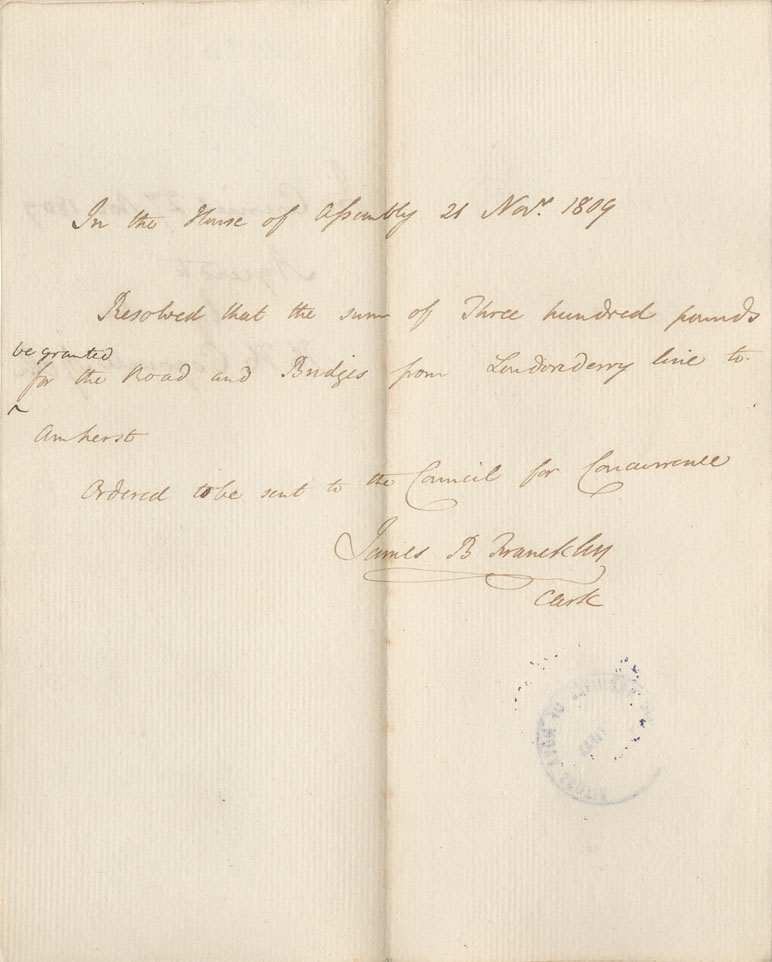 In the House of Assembly 21 Novr. 1809
Resolved that the sum of Three hundred pounds
be granted
for the Road and Bridges from Londonderry line to
^
Amherst
Ordered to be sent to the Council for Concurrence
James B Francklin
Clerk